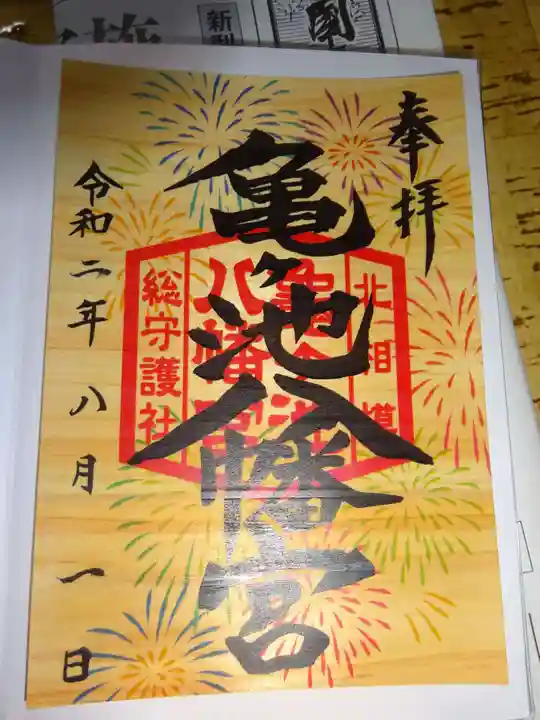 奉拝
亀ヶ池八幡宮
北相模
亀ヶ池
八幡宮
総守護社
令和二年八月一日
新刊